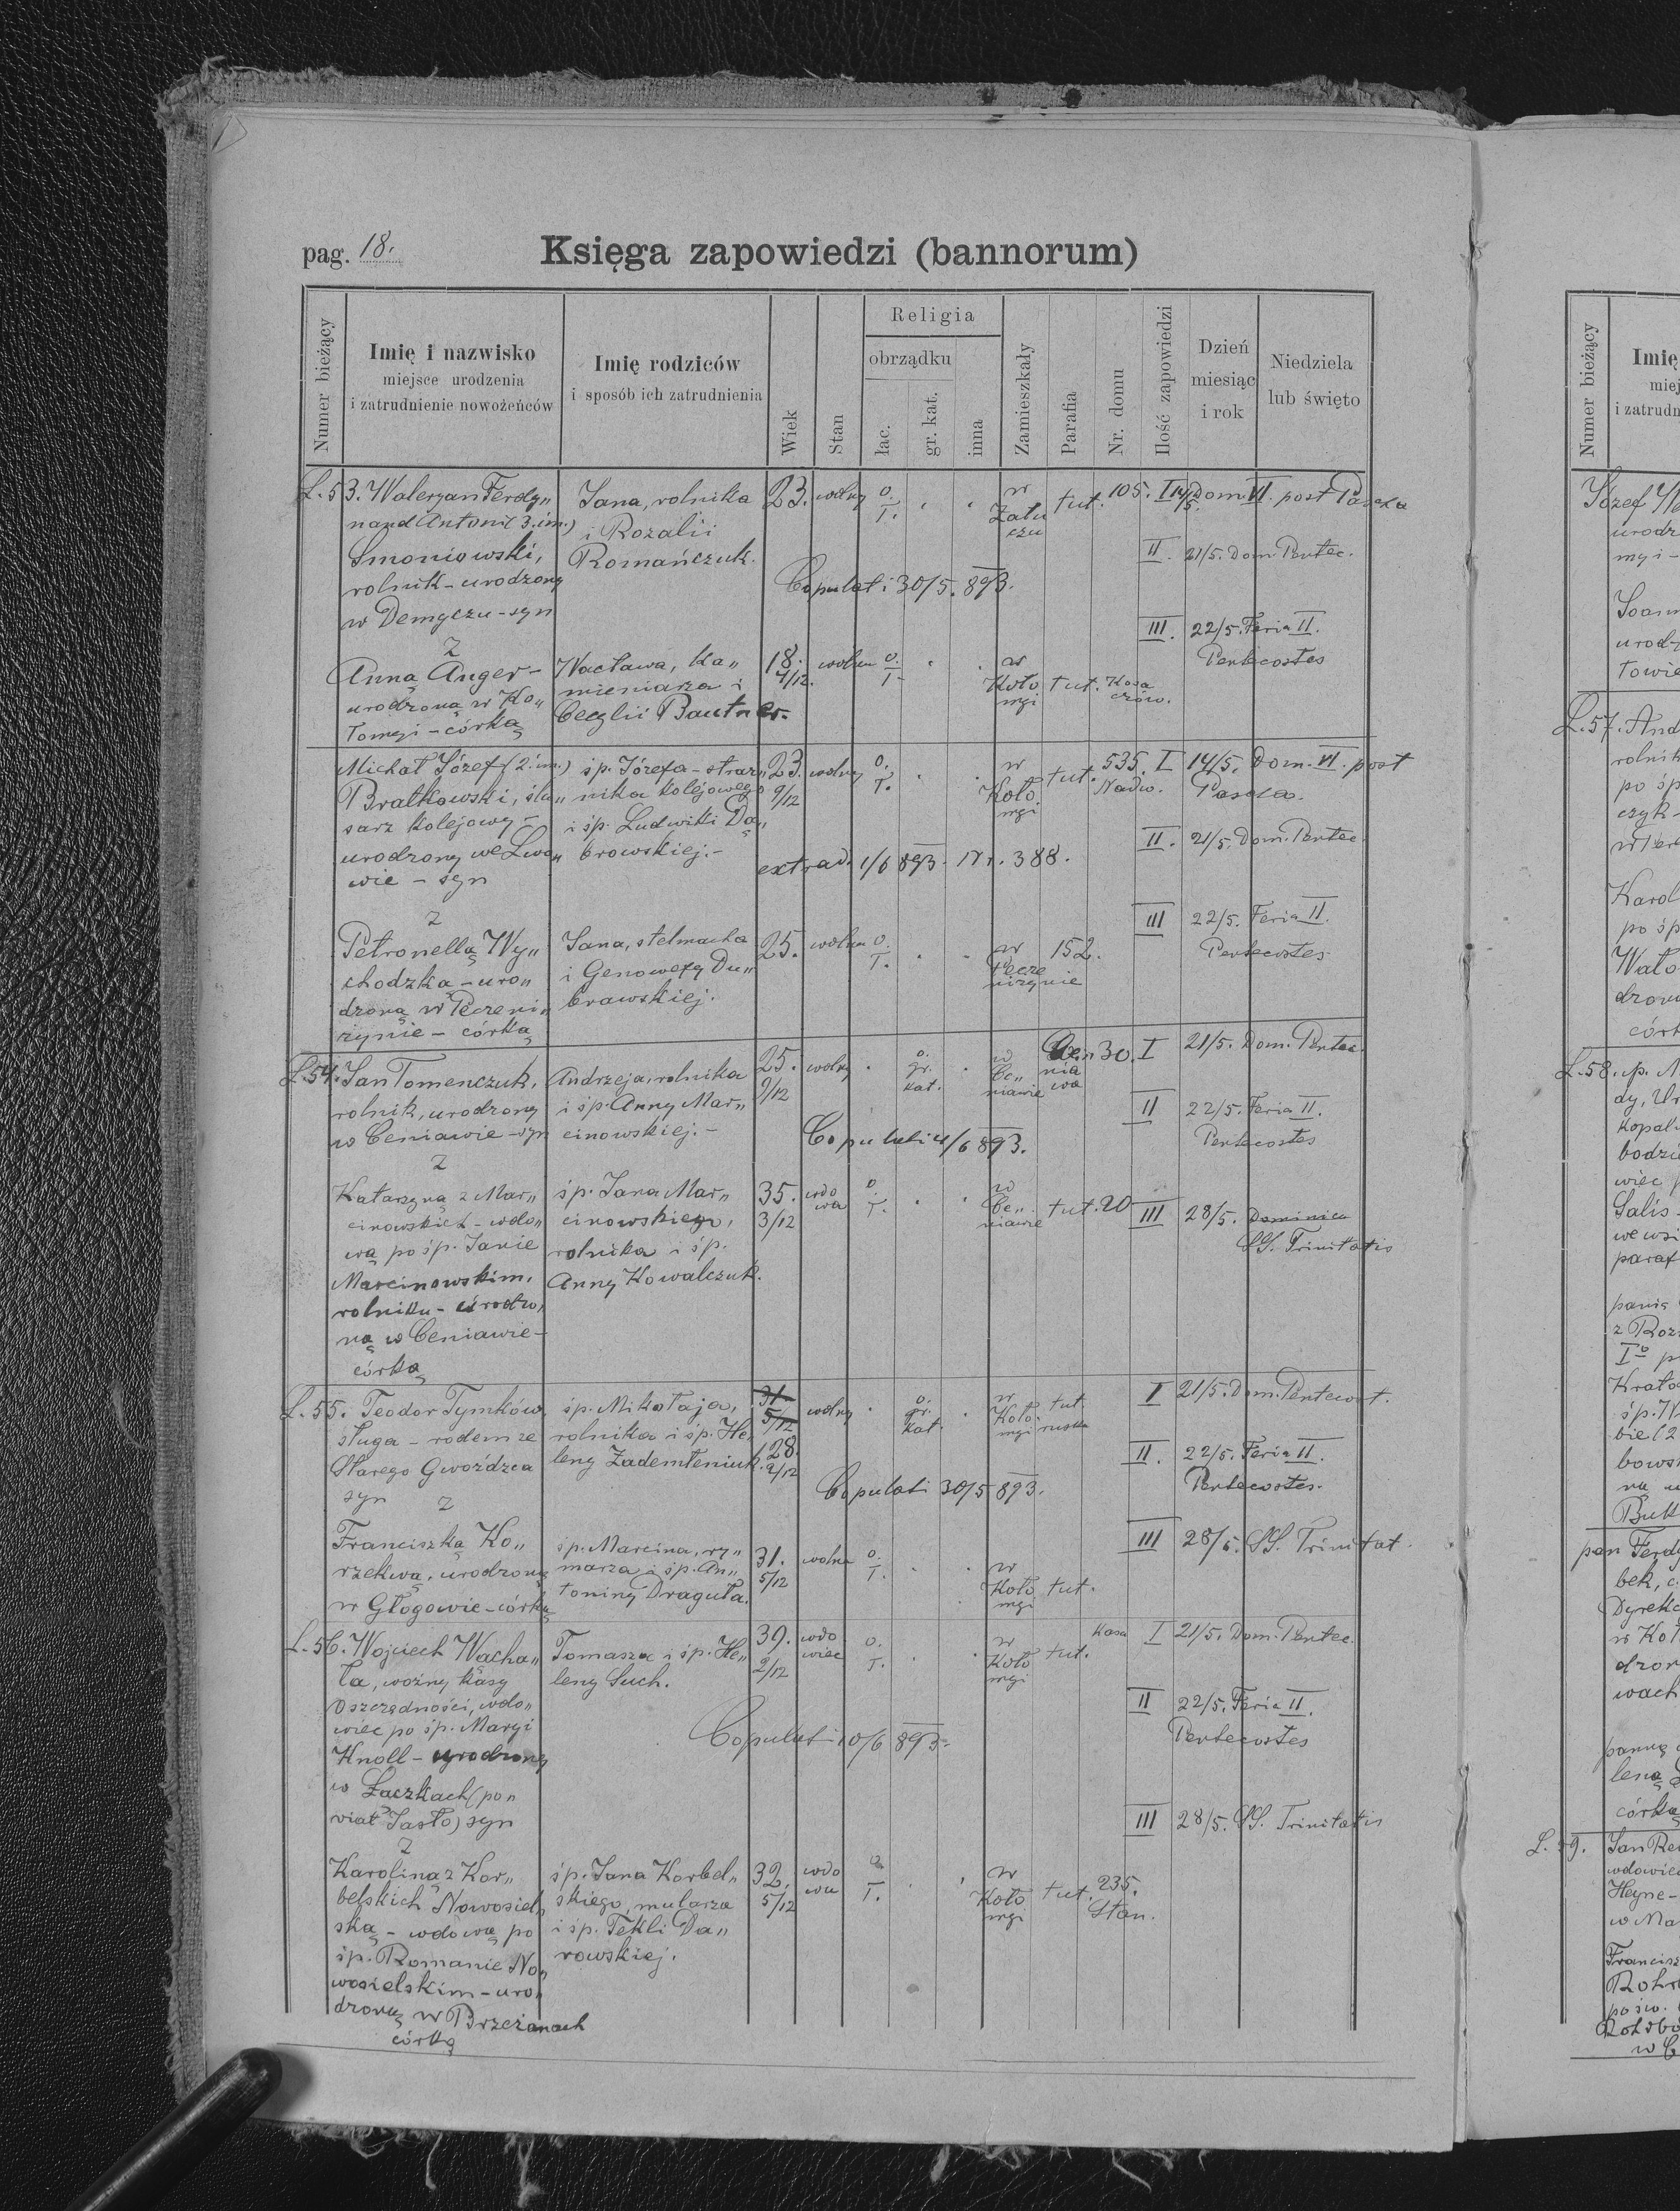 pag. 18.
Księga zapowiedzi (bannorum)
Numer bieżący
Imię i nazwisko
miejsce urodzenia
i zatrudnienie nowożeńców
Imię rodziców
i sposób ich zatrudnienia
Wiek
Stan
Religia
obrządku
łac.
gr. kat.
inna
Zamieszkały
Parafia
Nr. domu
Ilość zapowiedzi
Dzień
miesiąc
i rok
Niedziela
lub święto
L. 53. Waleryan Ferdy„
nand Antoni (3. im.)
Smoniowski,
rolnik - urodzony
w Demyczu - syn
Jana, rolnika
i Rozalii
Romańczuk.
23. wolny o. ł. w Zału czu tut. 105. I 14/5. Dom. VI. post Pascha
II. 21/5. Dom. Pentec.
Copulati 30/5. 893.
III. 22/5. Feria II.
Pentecostes
z
Anną Anger -
urodzoną w Ko„
łomyi - córką
Wacława, ka„
mieniarza i
Cecylii Bautner.
18. 4/12. wolna o. ł. w Koło myi tut. Kosa czów.
Michał Józef (2. im.)
Bratkowski, ślu„
sarz kolejowy -
urodzony we Lwo„
wie - syn
śp. Józefa - straż„
nika kolejowego
i śp. Ludwiki Dą„
browskiej. -
23. 9/12 wolny o. ł. w Koło myi tut. 535. Nadw. I 14/5. Dom. VI. post
Pascha.
II. 21/5. Dom. Pentec.
extrad. 1/6 893. Nr. 388.
III 22/5. Feria II.
Pentecostes.
z
Petronellą Wy„
chodzką - uro„
dzoną w Peczeni„
żynie - córką
Jana, stelmacha
i Genowefy Du„
brawskiej.
25. wolna o. ł. w Pecze niżynie 152.
L. 54. Jan Tomenczuk,
rolnik, urodzony
w Ceniawie - syn
Andrzeja, rolnika
i śp. Anny Mar„
cinowskiej. -
25. 9/12 wolny o. gr. kat. w Ce„ niawie Cen nia wa 30. I 21/5. Dom. Pentec.
II 22/5. Feria II.
Pentecostes
Copulati 4/6 893.
z
Katarzyną z Mar„
cinowskich - wdo„
wą po śp. Janie
Marcinowskim,
rolniku - urodzo„
ną w Ceniawie -
córką
śp. Jana Mar„
cinowskiego,
rolnika i śp.
Anny Kowalczuk.
35. 3/12 wdo wa o. ł. w Ce„ niawie tut. 20 III 28/5. Dominica
SS. Trinitatis
L. 55. Teodor Tymków
sługa - rodem ze
Starego Gwoźdźca
syn
śp. Mikołaja,
rolnika i śp. He„
leny Zademleniuk.
31 5/12
28. 2/12
wolny o. gr. kat. w Koło myi tut. ruska I 21/5. Dom. Pentecost.
II. 22/5. Feria II.
Pentecostes.
Copulati 30/5 893.
III 28/5. SS. Trinitat.
z
Franciszką Ko„
rzekwą, urodzoną
w Głogowie - córką
śp. Marcina, ry„
marza i śp. An„
toniny Draguła.
31. 5/12 wolna o. ł. w Koło myi tut.
L. 56. Wojciech Wacha„
ła, woźny kasy
oszczędności, wdo„
wiec po śp. Maryi
Knoll - urodzony
w Łączkach (po„
wiat Jasło) syn
Tomasza i śp. He„
leny Such.
39. 2/12 wdo wiec o. ł. w Koło myi tut. Kasa I 21/5. Dom. Pentec.
II 22/5. Feria II.
Pentecostes
Copulati 10/6 893.
III 28/5. SS. Trinitatis
z
Karoliną z Kor„
belskich Nowosiel„
ską - wdową po
śp. Romanie No„
wosielskim - uro„
dzoną w Brzeżanach
córką
śp. Jana Korbel„
skiego, mularza
i śp. Tekli Da„
rowskiej.
32. 5/12 wdo wa o. ł. w Koło myi tut. 235. Stan.
Numer bieżący
Imię
miej
i zatrudn
Józef
urodz
myi -
urody
L. 57. And
rolnik
po śp
czyk -
Karol
po śp
dzona
córk
L. 58.
dy, Ur
kopal„
więc
Salis
we wsi
paraf
z Roz
Krato
śp. W
bie (2
bows
Buk
pan Ferdy
bek, c.
Dyrekc
w Koł
dzon
wach
panną
leną
córką
L. 59. Jan
wdowiec
Heyne -
w Ma
Francisz